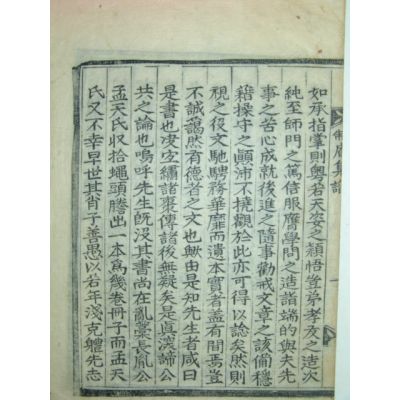 如承指掌則粤若天姿之穎悟豈弟孝友之造次
純至師門之篤信服膺學問之造詣端的與夫先
事之苦心成就後進之隨事勸戒文章之該備穩
藉操守之顚沛不撓觀於此亦可得以諗矣然則
視之後文馳騁務華靡而遺本實者盖有間焉豈
不誠藹然有德者之文也歟由是知先生者咸曰
是書也繡諸棗傳諸後無疑矣是眞諦公
共之論也嗚呼先生旣沒其書尚在亂藁長胤公
孟天氏收拾蠅頭謄出一本爲幾卷冊子而孟天
氏又不幸早世其肖子善愚以若年淺克軆先志